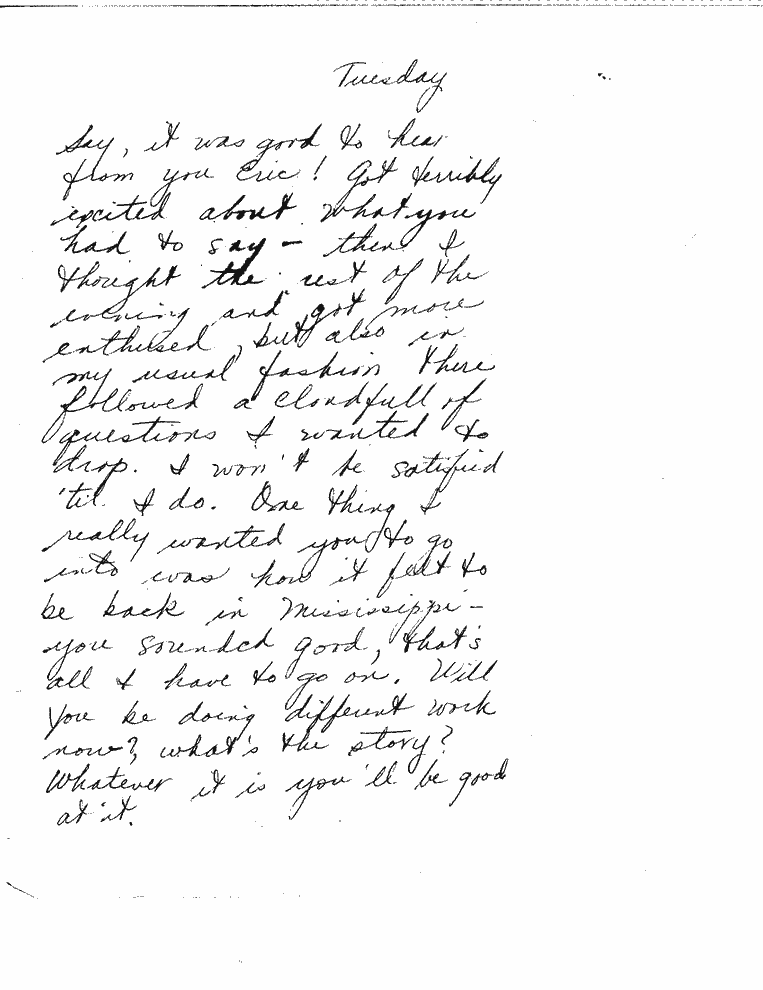 Tuesday
Say, it was good to hear
from you Eric! Got terribly
excited about what you
had to say – then I
thought the rest of the
evening and got more
enthused, but also in
my usual fashion there
followed a cloudfull of
questions I wanted to
drop. I won't be satisfied
'til I do. One thing I
really wanted you to go
into was how it felt to
be back in Mississippi –
you sounded good, that's
all I have to go on. Will
you be doing different work
now?, what's the story?
Whatever it is you'll be good
at it.